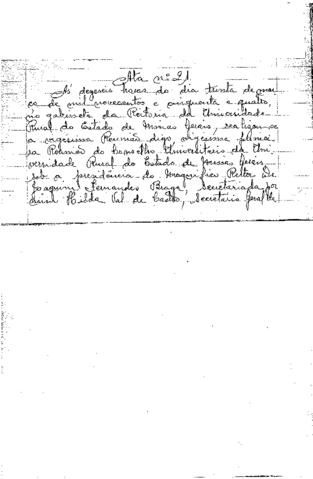 Ata nº 21
As dezeseis horas do dia trinta de mar
ço de mil novecentos e cinquenta e quatro,
no gabinete da Reitoria da Universidade
Rural do Estado de Minas Gerais, realizou-se
a vigessima Reunião digo vigessima primei
ra Reunião do Conselho Universitário da Uni
versidade Rural do Estado de Minas Gerais,
sob a presidência do Magnifico Reitor Dr.
Joaquim Fernandes Braga, Secretariada por
mim Hilda Val de Castro, Secretaria Geral de